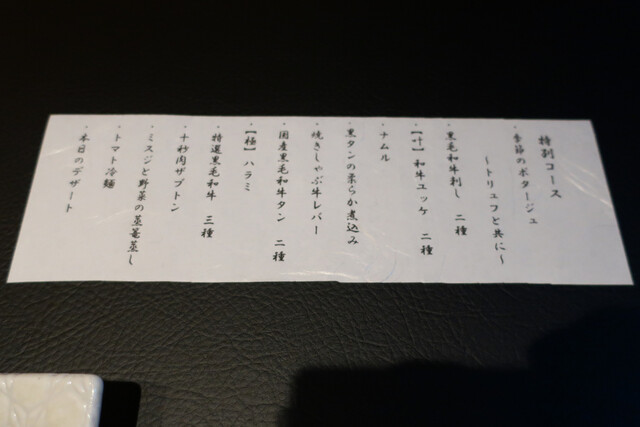 特別コース
・季節のポタージュ
～トリュフと共に～
・黒毛和牛刺し 二種
・【叶】和牛ユッケ 二種
・ナムル
・黒タンの柔らか煮込み
・焼きしゃぶ牛レバー
・国産黒毛和牛タン 二種
・【極】ハラミ
・特選黒毛和牛 三種
・十秒肉ザブトン
・ミスジと野菜の茎菴蒸し
・トマト冷麺
・本日のデザート